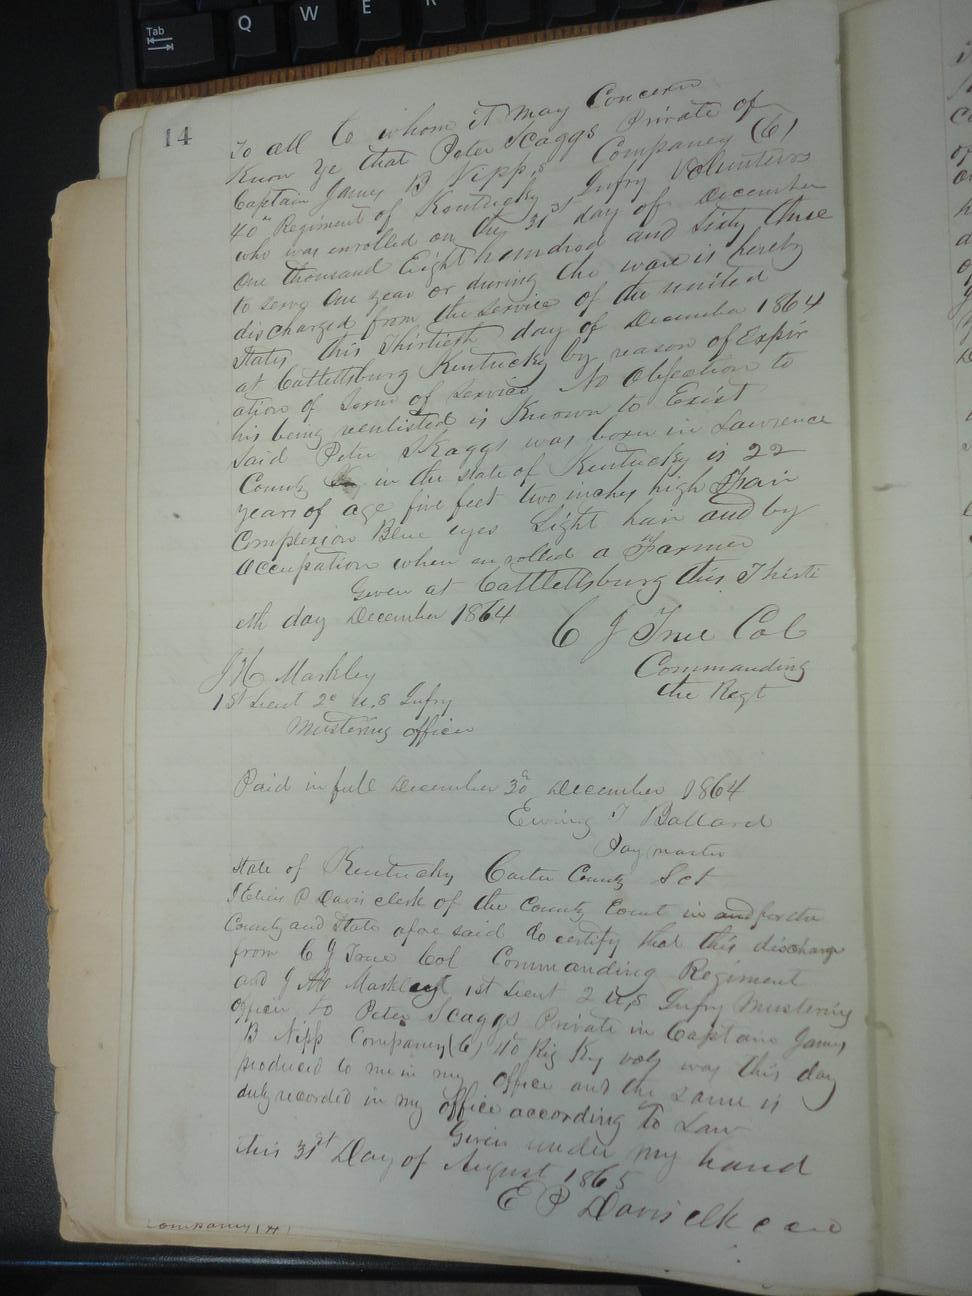 Tab
Q
W
E
R
14
To all to whom it may Concern
Know Ye that Peter Scaggs Private of
Captain James B Nipp,s Company (C)
40" Regiment of Kentucky Infry Volunteers
who was enrolled on the 31st day of December
One thousand Eight hundred and Sixty three
to serve One year or during the ware is hereby
discharged from the Service of the united
States this Thirtieth day of December 1864
at Cattlettsburg Kentucky by reason of Expir
ation of Term of Service No Objection to
his being reenlisted is Known to Exist
Said Peter Skaggs was born in Lawrence
County in the state of Kentucky is 22
years of age five feet two inches high Fair
Complexion Blue eyes Light hair and by
Occupation when enrolled a Farmer
Given at Cattlettsburg this Thirti
eth day December 1864
C J True Col
Commanding
the Regt
J H Markley
1st Lieut 2d U,S Infry
Mustering officer
Paid in full December 30 December 1864
Ewing T Ballard
Paymaster
State of Kentucky Carter County Sct
I P Davis clerk of the County Court in and for the
County and State afore said do certify that this discharge
from C J True Col Commanding Regiment
and J H Markley 1st Lieut 2 U,S Infry Mustering
Officer to Peter Scaggs Private in Captain James
B Nipp Company (C) 40 Rig Ky vols was this day
produced to me in my Office and the same is
duly recorded in my office according to Law
Given under my hand
this 31st Day of August 1865
E P Davis clk
Company (H)